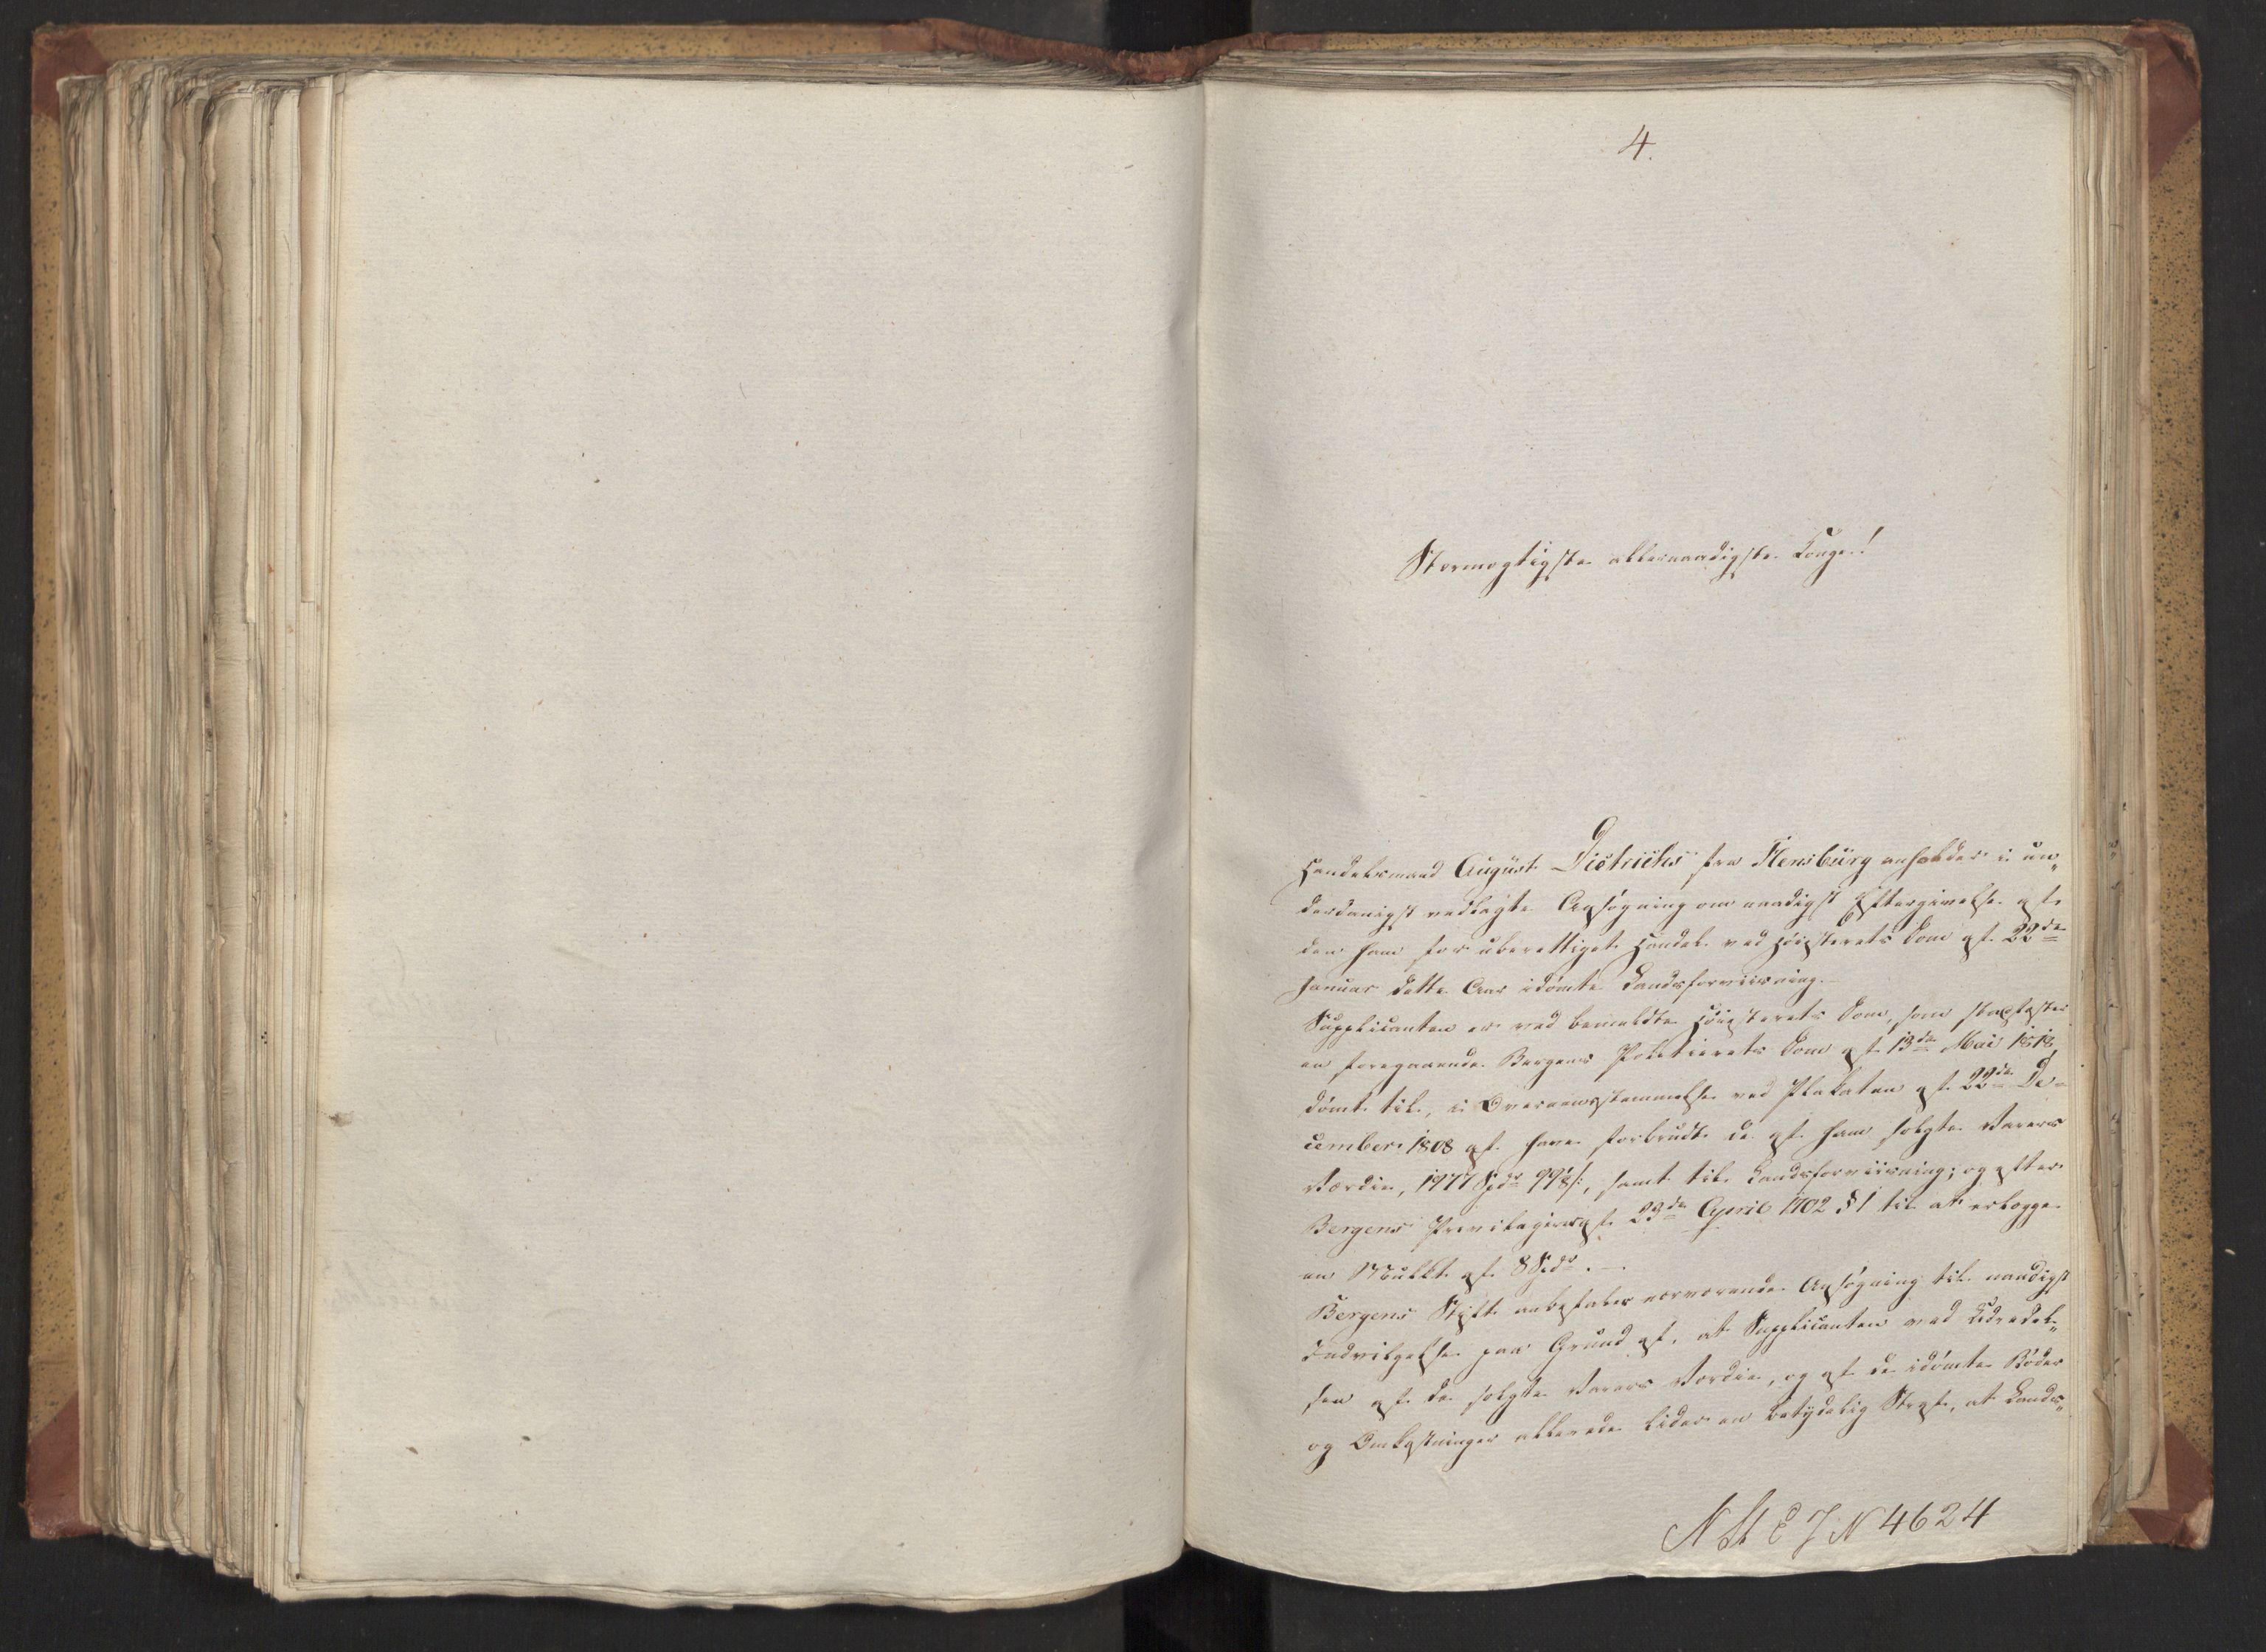 4.
Stormægtigste allernaadigste Konge!
Handelsmand August Dietrichs fra Flensburg anholder i un„
derdanigst vedlagte Ansøgning om naadigst Eftergivelse af
den ham for uberettiget Handel ved Høiesterets Dom af 22de
Januar dette Aar idømte Landsforviisning.
Supplicanten er ved bemeldte Høiesterets Dom, som stadfæster
en foregaaende Bergens Politierets Dom af 13de Mai 1818,
dømt til, i Overeensstemmelse med Plakaten af 22de De-
cember 1808 at have forbrudt de af ham solgte Varers
Værdie, 1977 Spdr 99 ß, samt til Landsforviisning; og efter
Bergens Privilegier af 23de April 1702 § 1 til at erlægge
en Mulkt af 8 Spdr. —
Bergens Stift anbefaler nærværende Ansøgning til naadigst
Indvilgelse paa Grund af, at Supplicanten ved Udredel„
sen af de solgte Varers Værdie, og af de idømte Bøder
og Omkostninger allerede lider en betydelig Straf, at Lands„
N St E J N 4624